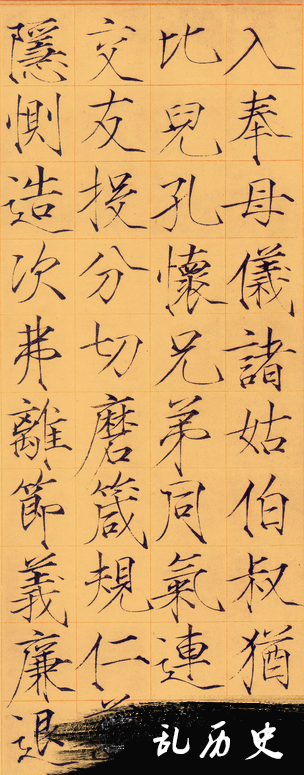 入奉母儀諸姑伯叔猶
比兒孔懷兄弟同氣連
交友投分切磨箴規仁
隱惻造次弗離節義廉退
乱历史